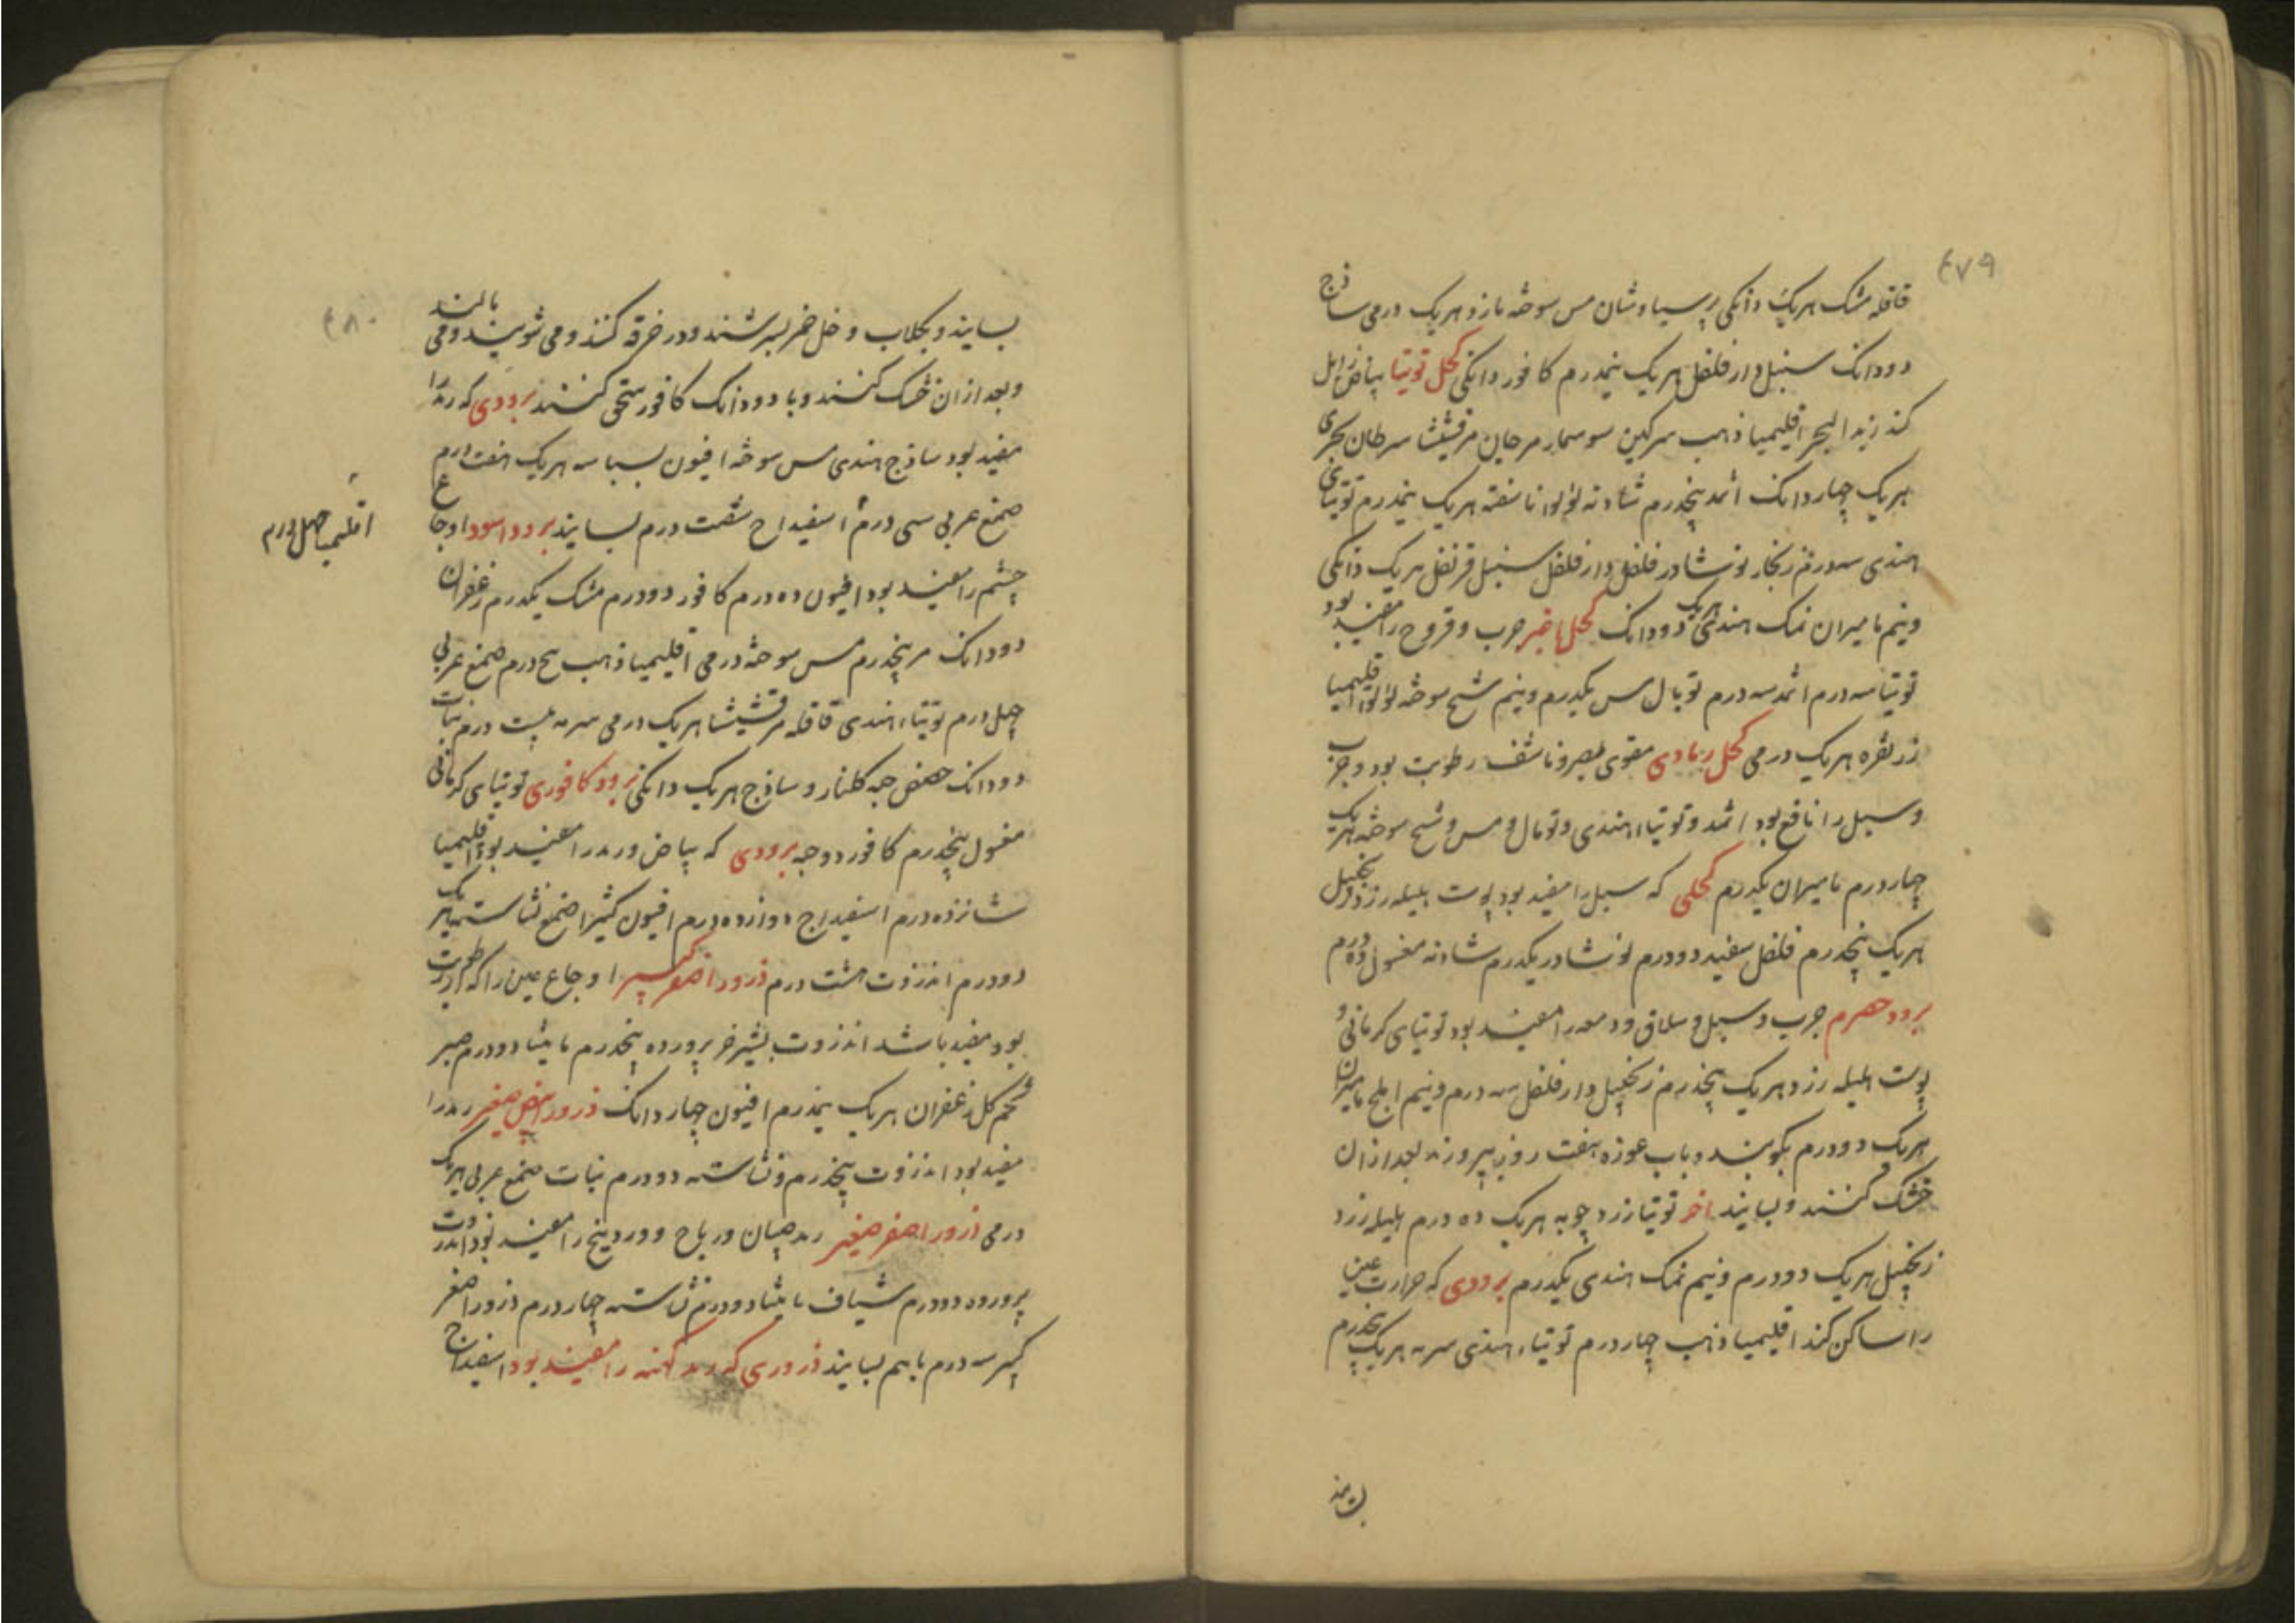 ۴۷۹
قاقله مشک هریک دانکی پرسیاوشان مس سوخته مازو هریک درمی ساذج
دودانک سنبل دارفلفل هریک نیمدرم کافور دانکی کحل توتیا بیاض زایل
کند زبد البحر اقلیمیا ذهب سرکین سوسمار مرجان مرقشیثا سرطان بحری
هریک چهاردانک اثمد پنجدرم شادنه لؤلؤ ناسفته هریک نیمدرم توتیای
هندی سه درم زنجار نوشادر فلفل دارفلفل سنبل قرنفل هریک دانکی
ونیم مامیران نمک هندی هریک دودانک کحل اغبر جرب و قروح را مفید بود
توتیا سه درم اثمد سه درم توبال مس یکدرم ونیم شیح سوخته لؤلؤ اقلیمیا
زر نقره هریک درمی کحل رمادی مقوی بصر و ناشف رطوبت بود و جرب
و سبل را نافع بود اثمد و توتیاء هندی و توبال مس و شیح سوخته هریک
چهاردرم مامیران یکدرم کحلی که سبل را مفید بود پوست هلیله زرد و زنجبیل
هریک پنجدرم فلفل سفید دودرم نوشادر یکدرم شادنه مغسول ده درم
برود حصرم جرب و سبل و سلاق و دمعه را مفید بود توتیای کرمانی و
پوست هلیله زرد هریک پنجدرم زنجبیل دارفلفل سه درم ونیم املج مامیران
هریک دودرم بکوبند و باب غوره هفت روز بپرورند بعد ازان
خشک کنند و بسایند اخر توتیا زرد چوبه هریک ده درم هلیله زرد
زنجبیل هریک دودرم ونیم نمک هندی یکدرم برودی که حرارت عین
را ساکن کند اقلیمیا ذهب چهاردرم توتیاء هندی سرمه هریک پنجدرم
۴۸۰
بسایند و بکلاب و خل خمر بسرشند و در خرقه کنند و می شویند و می مالند
و بعد ازان خشک کنند و با دودانک کافور سحق کنند برودی که رمد را
مفید بود ساذج هندی مس سوخته افیون بسباسه هریک هفت درم
صمغ عربی سی درم اسفیداج شصت درم بسایند برود اسود اوجاع
اقلیمیا چهل درم
چشم را مفید بود افیون ده درم کافور دودرم مشک یکدرم زعفران
دودانک مر پنجدرم مس سوخته درمی اقلیمیا ذهب پنج درم صمغ عربی
چهل درم توتیاء هندی قاقله مرقشیشا هریک درمی سرمه بیست درم نبات
دودانک حضض حبه کلنار و ساذج هریک دانکی برود کافوری توتیای کرمانی
مغسول پنجدرم کافور دوحبه برودی که بیاض و رمد را مفید بود اقلیمیا
شانزده درم اسفیداج دوازده درم افیون کثیرا صمغ نشاسته هریک
دودرم انزروت هشت درم ذرور اصفر کبیر اوجاع عین را که از رطوبت
بود مفید باشد انزروت بشیر خر پرورده پنجدرم مامیثا دودرم صبر
تخم کل زعفران هریک نیمدرم افیون چهاردانک ذرور ابیض صغیر رمد را
مفید بود انزروت پنجدرم و نشاسته دودرم نبات صمغ عربی هریک
درمی ذرور اصفر صغیر رمد صبیان و ریاح و وردینج را مفید بود انزروت
پرورده دودرم شیاف مامیثا دودرم نشاسته چهاردرم ذرور اصفر
کبیر سه درم باهم بسایند ذروری که رمد کهنه را مفید بود اسفیداج